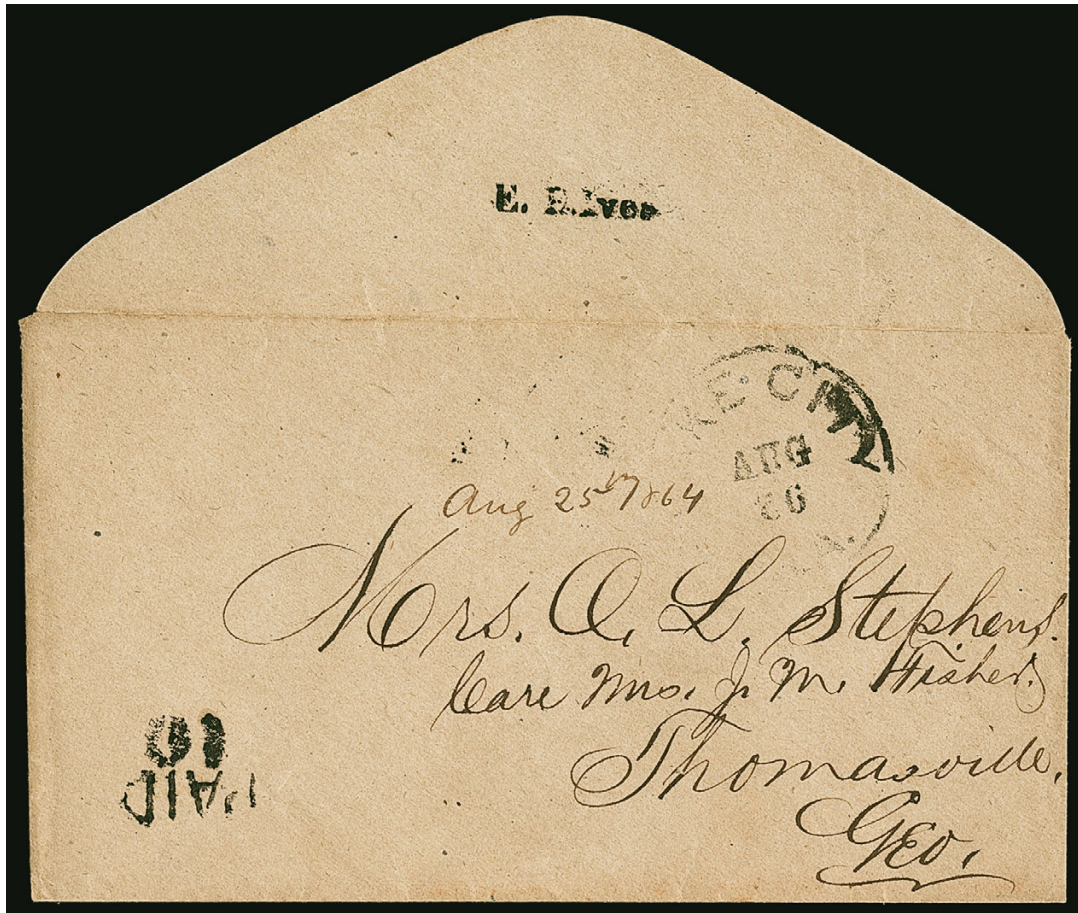 E. R. Ives
KE CITY
AUG
26
A.
Aug 25th 1864
Mrs. O. L. Stephens.
Care Mrs. J. M. Fisher.
Thomasville,
Geo.
10
PAID